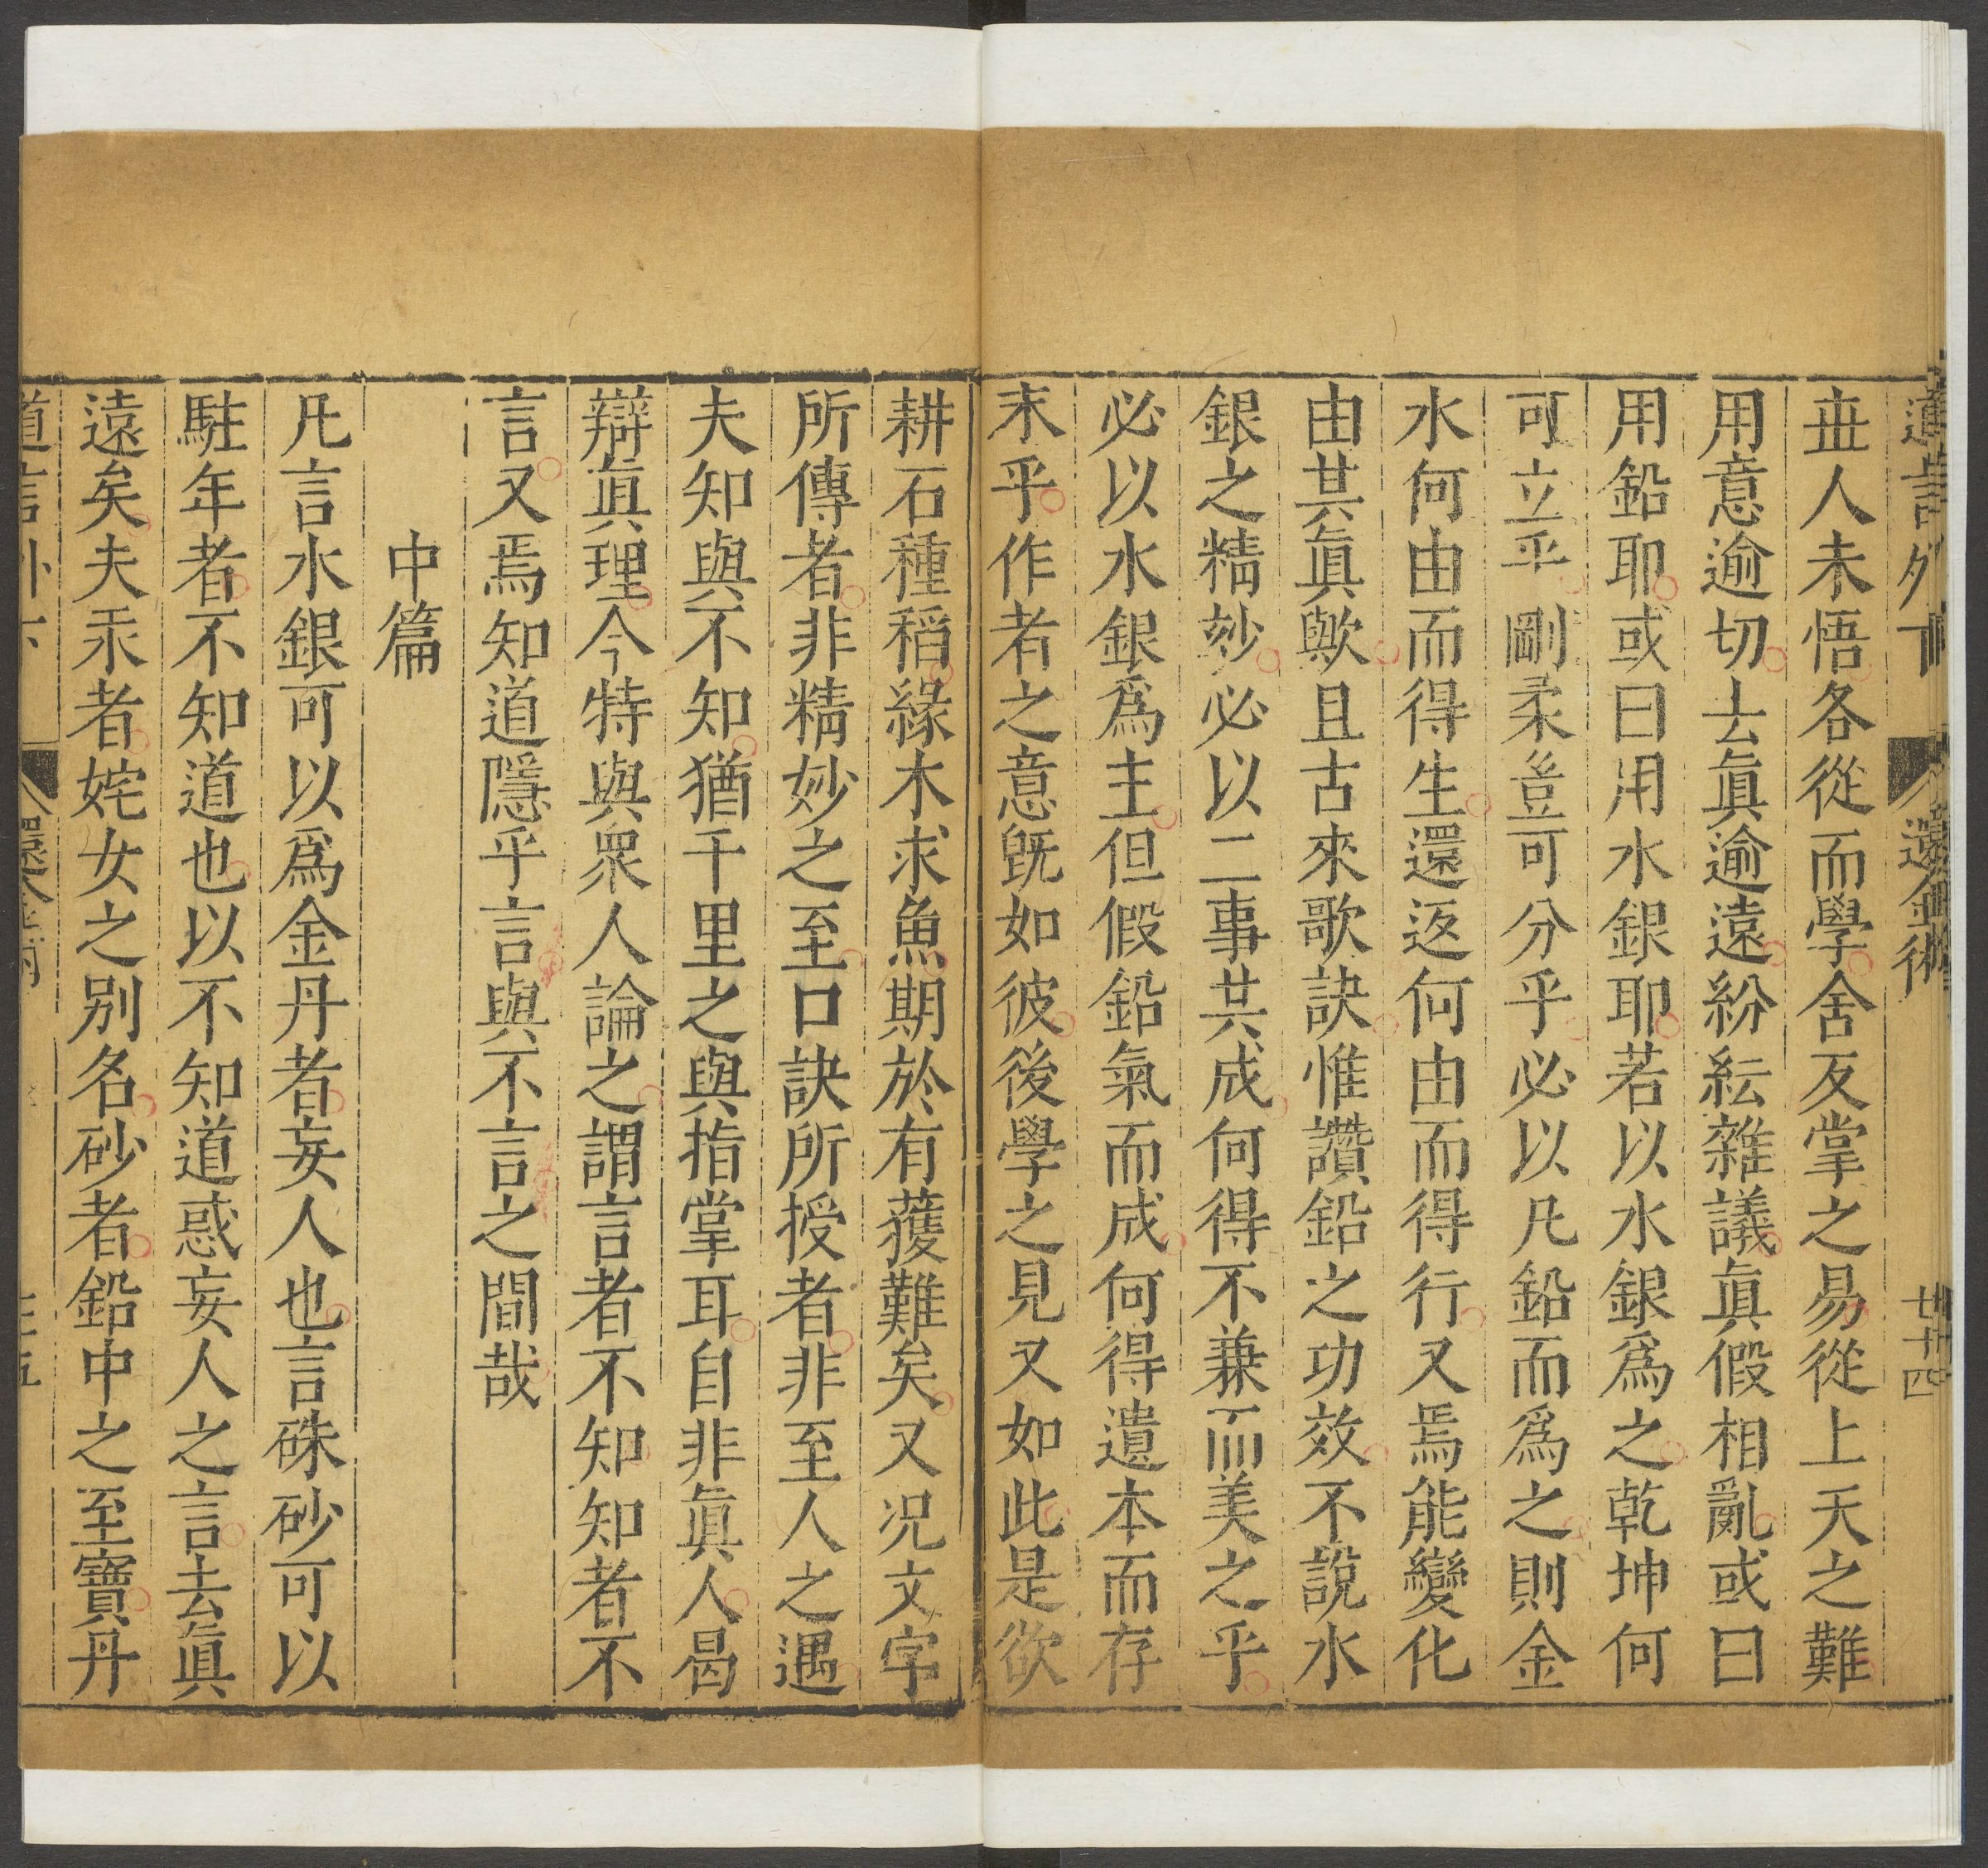 道言外 下 還金術 廿四
丗人未悟各從而學舍反掌之易從上天之難
用意逾切去眞逾遠紛紜雜議眞假相亂或曰
用鉛耶或曰用水銀耶若以水銀爲之乾坤何
可立乎剛柔豈可分乎必以凡鉛而爲之則金
水何由而得生還返何由而得行又焉能變化
由其眞歟且古來歌訣惟讚鉛之功效不說水
銀之精妙必以二事共成何得不兼而美之乎
必以水銀爲主但假鉛氣而成何得遺本而存
末乎作者之意旣如彼後學之見又如此是欲
耕石種稻緣木求魚期於有蒦難矣又况文字
所傳者非精妙之至口訣所授者非至人之遇
夫知與不知猶千里之與指掌耳自非眞人曷
辯眞理今特與衆人論之謂言者不知知者不
言又焉知道隱乎言與不言之間哉
中篇
凡言水銀可以爲金丹者妄人也言硃砂可以
駐年者不知道也以不知道惑妄人之言去眞
遠矣夫汞者姹女之别名砂者鉛中之至寶丹
道言外下 還金術 五